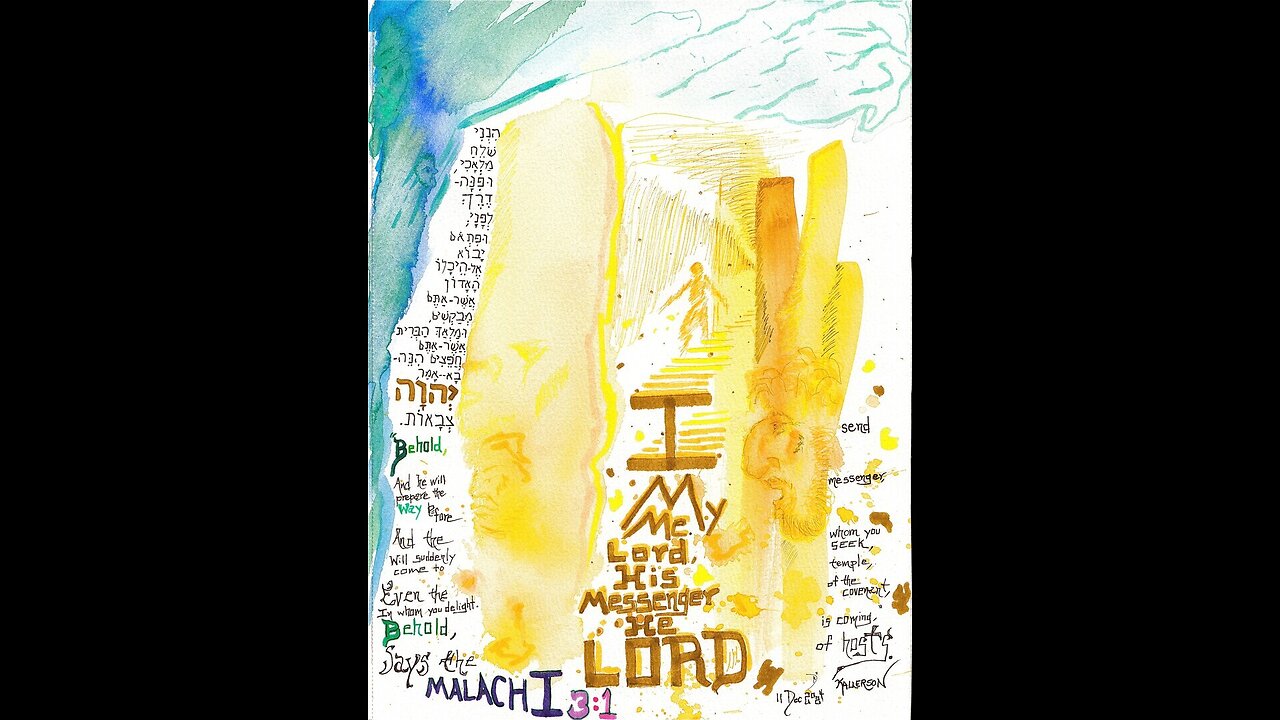 הִנְנִי
שֹׁלֵחַ
מַלְאָכִי,
וּפִנָּה-
דֶרֶךְ
לְפָנָי;
וּפִתְאֹם
יָבוֹא
אֶל-הֵיכָלוֹ
הָאָדוֹן
אֲשֶׁר-אַתֶּם
מְבַקְשִׁים,
וּמַלְאַךְ הַבְּרִית
אֲשֶׁר-אַתֶּם
חֲפֵצִים הִנֵּה-
בָא-אָמַר
יְהוָה
צְבָאוֹת.
"Behold, I send
And he will My messenger,
prepare the
Way before Me.
And the Lord, whom you
SEEK,
Will suddenly
come to His temple,
Even the Messenger of the
covenant,
In whom you delight.
Behold, He is coming,
Says the LORD of hosts.
MALACHI 3:1
11 Dec 2024
KALLERSON